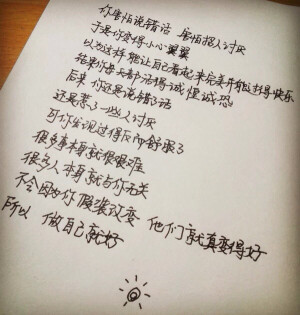 你害怕说错话 害怕招人讨厌
于是你变得小心翼翼
以为这样能让自己看起来完美并能过得快乐
结果你每天都活得诚惶诚恐
后来 你还是说错了话
还是惹了一些人讨厌
可你发现过得反而舒服了
很多事本身就很艰难
很多人本身就与你无关
不会因为你假装改变 他们就真变得好
所以 做自己就好